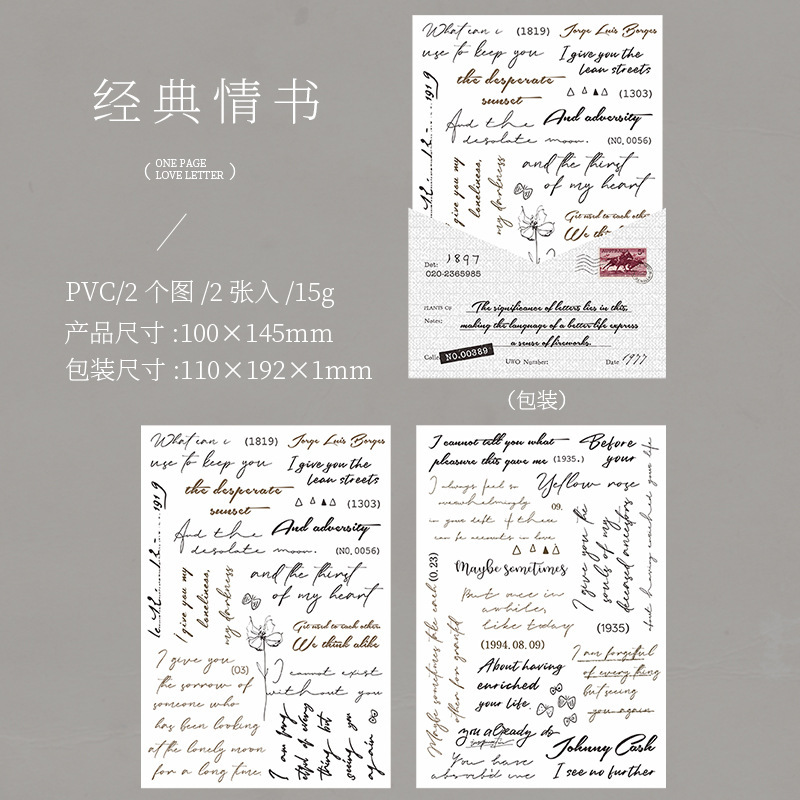 经典情书
( ONE PAGE
LOVE LETTER )
PVC/2 个图 /2 张入 /15g
产品尺寸 :100×145mm
包装尺寸 :110×192×1mm
What can i (1819) Jorge Luis Borges
use to keep you I give you the
lean streets
the desperate
sunset (1303)
And the And adversity
desolate moon. (NO, 0056)
and the thirst
of my heart
give you my
loneliness,
my darkness
Get used to each other
We th
12 12 1919
Det: 1897
020-2365985
PLANTS CO
Notes:
The significance of letters lies in this,
making the language of a better life express
a sense of fireworks.
Colle NO.00389 UWO Number: Date 1977
(包装)
What can i (1819) Jorge Luis Borges
use to keep you I give you the
lean streets
the desperate
sunset (1303)
And the And adversity
desolate moon. (NO, 0056)
and the thirst
of my heart
12 12 1919
I give you my
loneliness,
my darkness
Get used to each other
We think alike
I give you (03)
the sorrow of
someone who
has been looking
at the lonely moon
for a long time.
I cannot exist
without you
I am forg
etful of every
thing but
seeing you
again
I cannot tell you what
pleasure this gave me (1935.)
Before
your
I always feel so
overwhelmingly 09.
in your debt if there
can be accounts in love
Yellow rose
I give you the
souls of my
deceased ancestors
Maybe sometimes
But once in
awhile,
like today
(1994.08.09)
(0.23)
Maybe sometimes like each
other for granted
(1935)
About having
enriched
your life.
I am forgetful
of every thing
but seeing
you again
you already do
Johnny Cash
You have
absorb'd me
I see no further